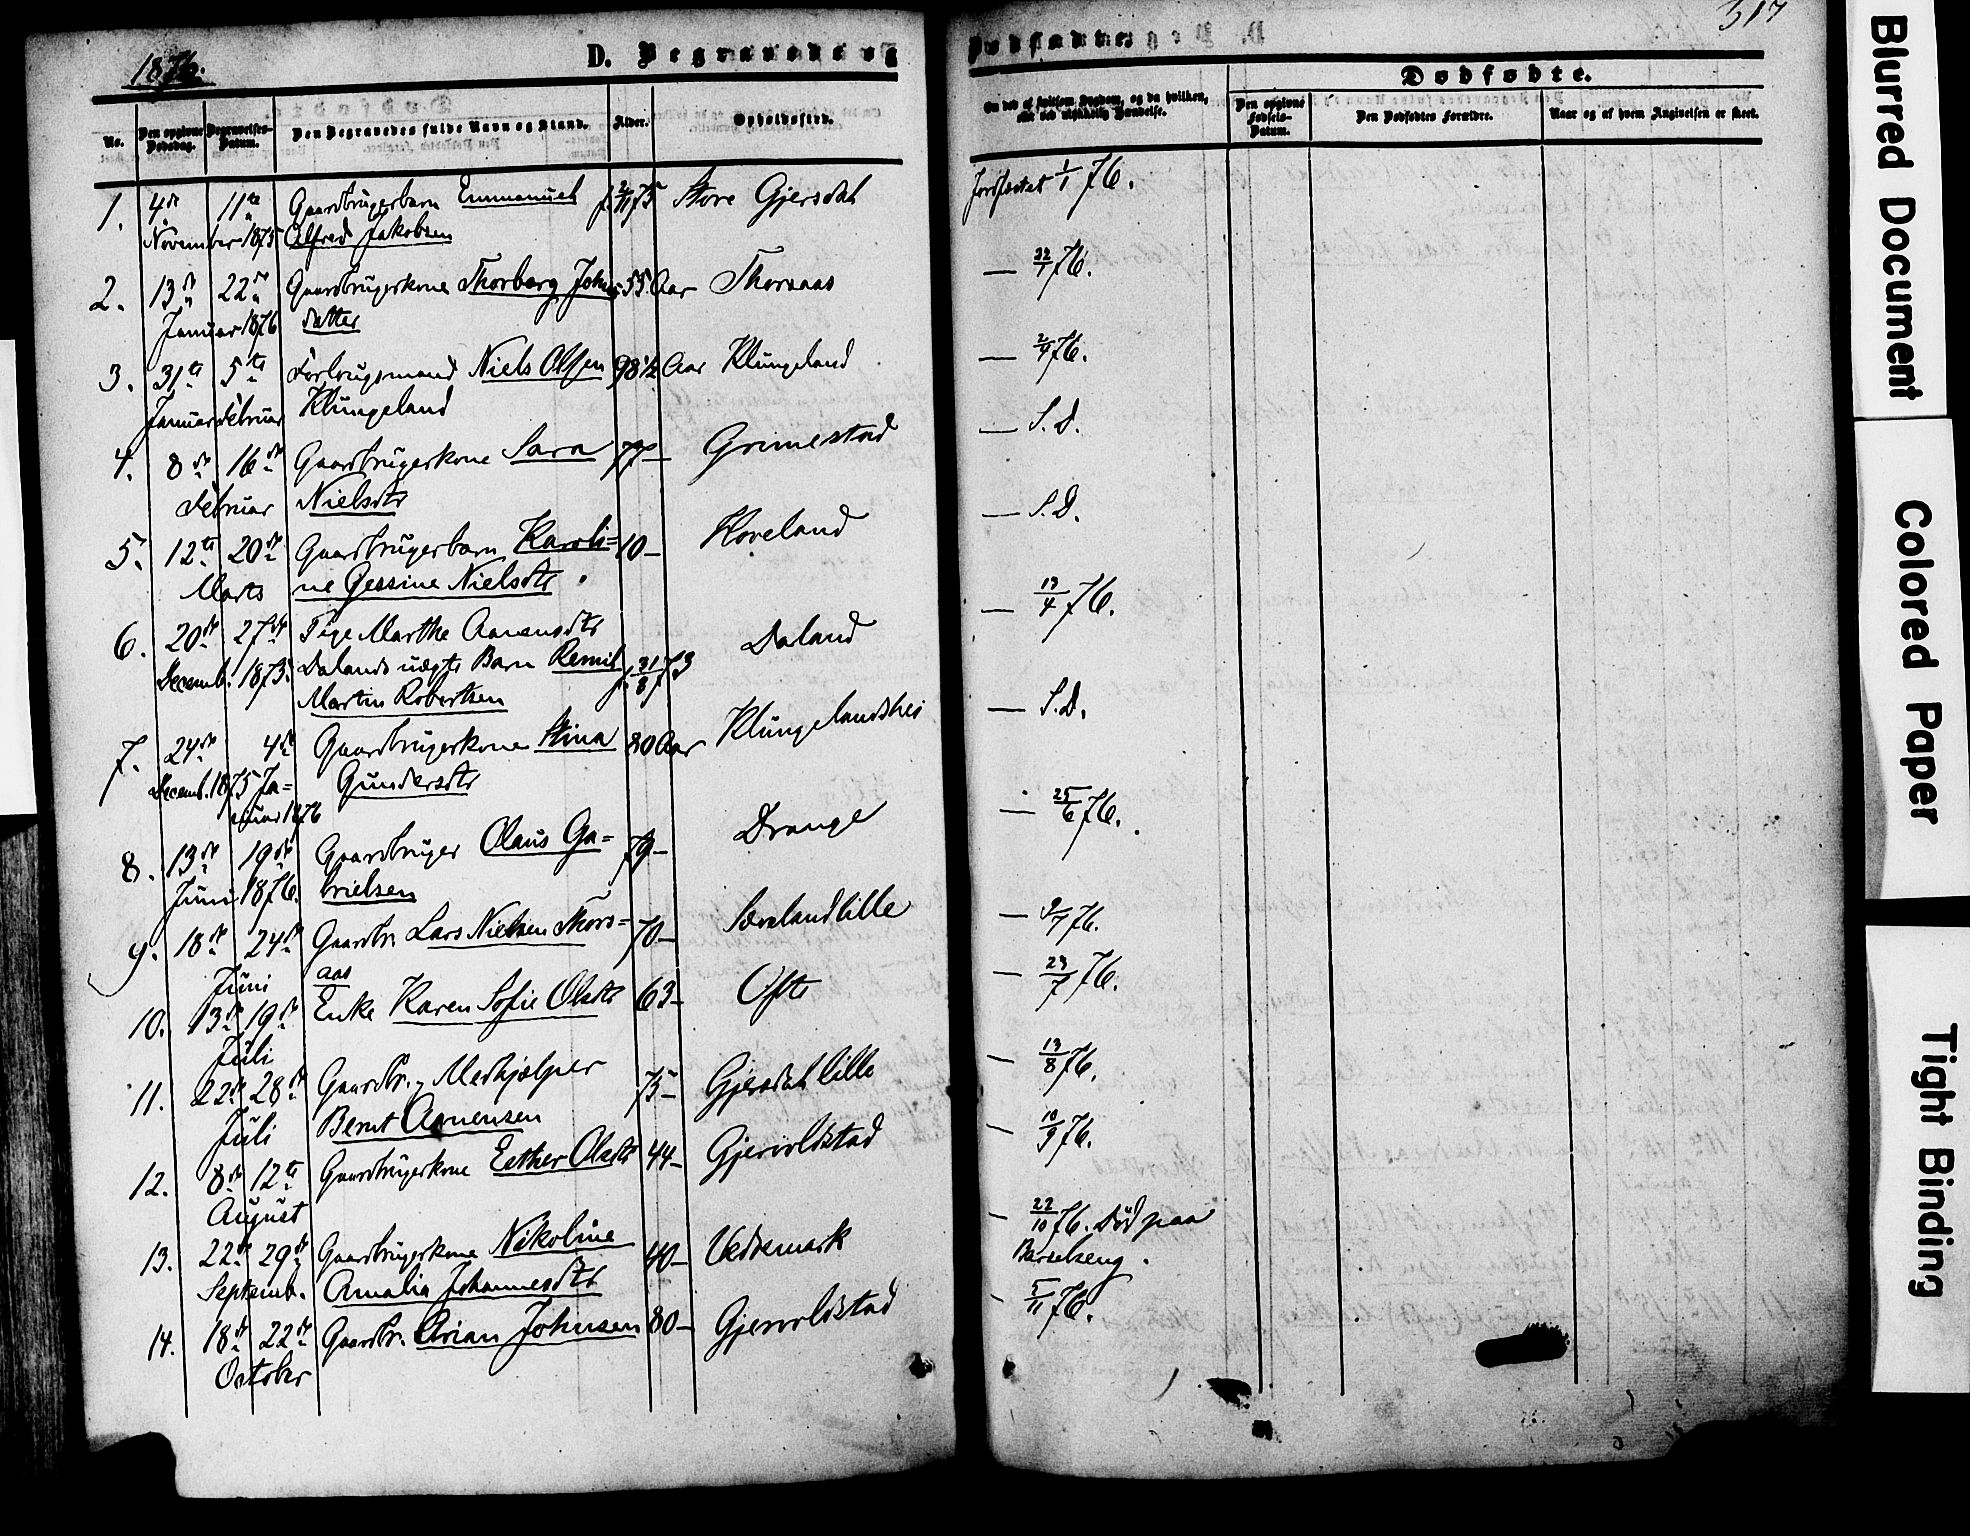 1876.
D. Begravede og
No.
Den opgivne Dødsdag.
Begravelses-Datum.
Den Begravedes fulde Navn og Stand.
Alder.
Opholdssted.
1. 4de 11te Gaardbrugerbarn Emmanuel f. 2/11 75 Store Gjersdal
November 1875 Alfred Jakobsen
2. 13de 22de Gaardbrugerkone Thorborg Johns- 55 Aar Thorsaas
Januar 1876 datter
3. 31te 5te Forbrugsmand Niels Olsen 98 1/2 Aar Klungeland
Januar Februar Klungeland
4. 8de 16de Gaardbrugerkone Sara 77 — Grimestad
Februar Nielsdtr
5. 12te 20de Gaardbrugerbarn Karoli= 10 — Hoveland
Marts ne Gessine Nielsdtr.
6. 20de 27de Pige Marthe Aanensdtr Daland
Decemb. 1873. Dalands uægte Barn Remil f. 31/8 73
Martin Robertsen
7. 24de 4de Gaardbrugerkone Stina 80 Aar Klungelandshei
Decemb. 1875 Ja= Gundersdtr
nuar 1876
8. 13de 19de Gaardbruger Olaus Ga= 79 — Drange
Juni 1876. brielsen
9. 18de 24de Gaardbr. Lars Nielsen Thors= 70 — Sævelandlille
Juni aas
10. 13de 19de Enke Karen Sofie Olsdtr 63 — Ofte
Juli
11. 22de 28de Gaardbr., Medhjælper 75 — Gjersdal lille
Juli Bernt Aanensen
12. 8de 12te Gaardbrugerkone Esther Olsdtr 44 — Gjervoldstad
August
13. 22de 29de Gaardbrugerkone Nikoline 40 — Veddemark
Septemb. Amalia Johannesdtr
14. 18de 22de Gaardbr. Arian Johnsen 80 — Gjervoldstad
October
317
Dødfødte.
Om død af smitsom Sygdom, og da hvilken,
eller ved ulykkelig Hændelse.
Dødfødte.
Den opgivne Fødsels-Datum.
Den Dødfødtes Forældre.
Naar og af hvem Angivelsen er skeet.
Jordfæstet 1/1 76.
— 22/1 76.
— 2/4 76.
— S. D.
— S. D.
— 13/4 76.
— S. D.
— 25/6 76.
— 9/7 76.
— 23/7 76.
— 13/8 76.
— 10/9 76.
— 22/10 76. Død paa
Barselseng.
— 5/11 76.
Blurred Document
Colored Paper
Tight Binding